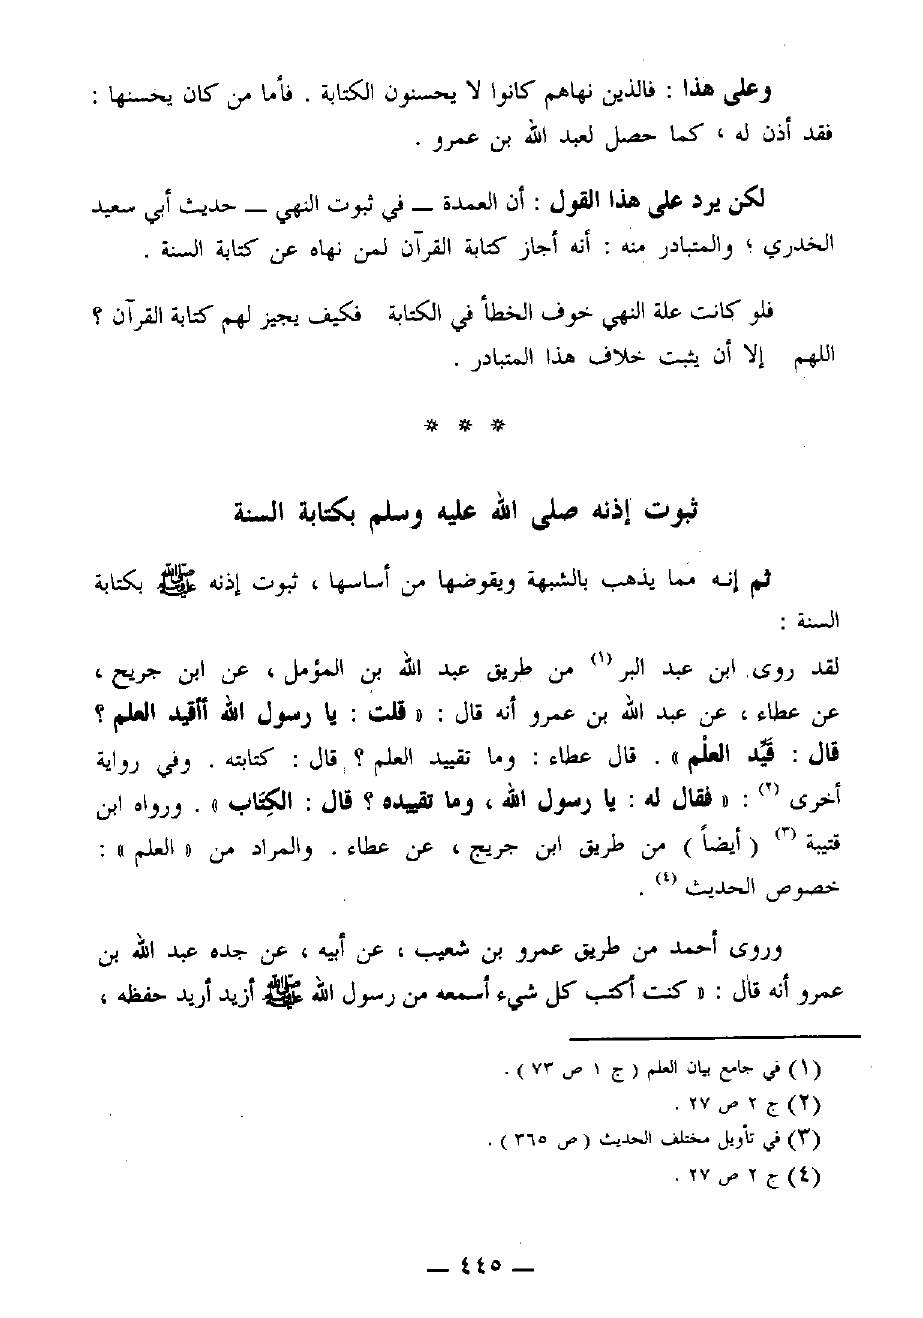 وعلى هذا : فالذين نهاهم كانوا لا يحسنون الكتابة . فأما من كان يحسنها :
فقد أذن له ، كما حصل لعبد الله بن عمرو .
لكن يرد على هذا القول : أن العمدة ــ في ثبوت النهي ــ حديث أبي سعيد
الخدري ؛ والمتبادر منه : أنه أجاز كتابة القرآن لمن نهاه عن كتابة السنة .
فلو كانت علة النهي خوف الخطأ في الكتابة فكيف يجيز لهم كتابة القرآن ؟
اللهم إلا أن يثبت خلاف هذا المتبادر .
* * *
ثبوت إذنه صلى الله عليه وسلم بكتابة السنة
ثم إنه مما يذهب بالشبهة ويقوضها من أساسها ، ثبوت إذنه ﷺ بكتابة
السنة :
لقد روى ابن عبد البر (١) من طريق عبد الله بن المؤمل ، عن ابن جريح ،
عن عطاء ، عن عبد الله بن عمرو أنه قال : « قلت : يا رسول الله أأقيد العلم ؟
قال : قَيِّد العلْم » . قال عطاء : وما تقييد العلم ؟ قال : كتابته . وفي رواية
أخرى (٢) : « فقال له : يا رسول الله ، وما تقييده ؟ قال : الكِتَاب » . ورواه ابن
قتيبة (٣) ( أيضاً ) من طريق ابن جريج ، عن عطاء . والمراد من « العلم » :
خصوص الحديث (٤) .
وروى أحمد من طريق عمرو بن شعيب ، عن أبيه ، عن جده عبد الله بن
عمرو أنه قال : « كنت أكتب كل شيء أسمعه من رسول الله ﷺ أزيد أريد حفظه ،
(١) في جامع بيان العلم ( ج ١ ص ٧٣ ) .
(٢) ج ٢ ص ٢٧ .
(٣) في تأويل مختلف الحديث ( ص ٣٦٥ ) .
(٤) ج ٢ ص ٢٧ .
— ٤٤٥ —